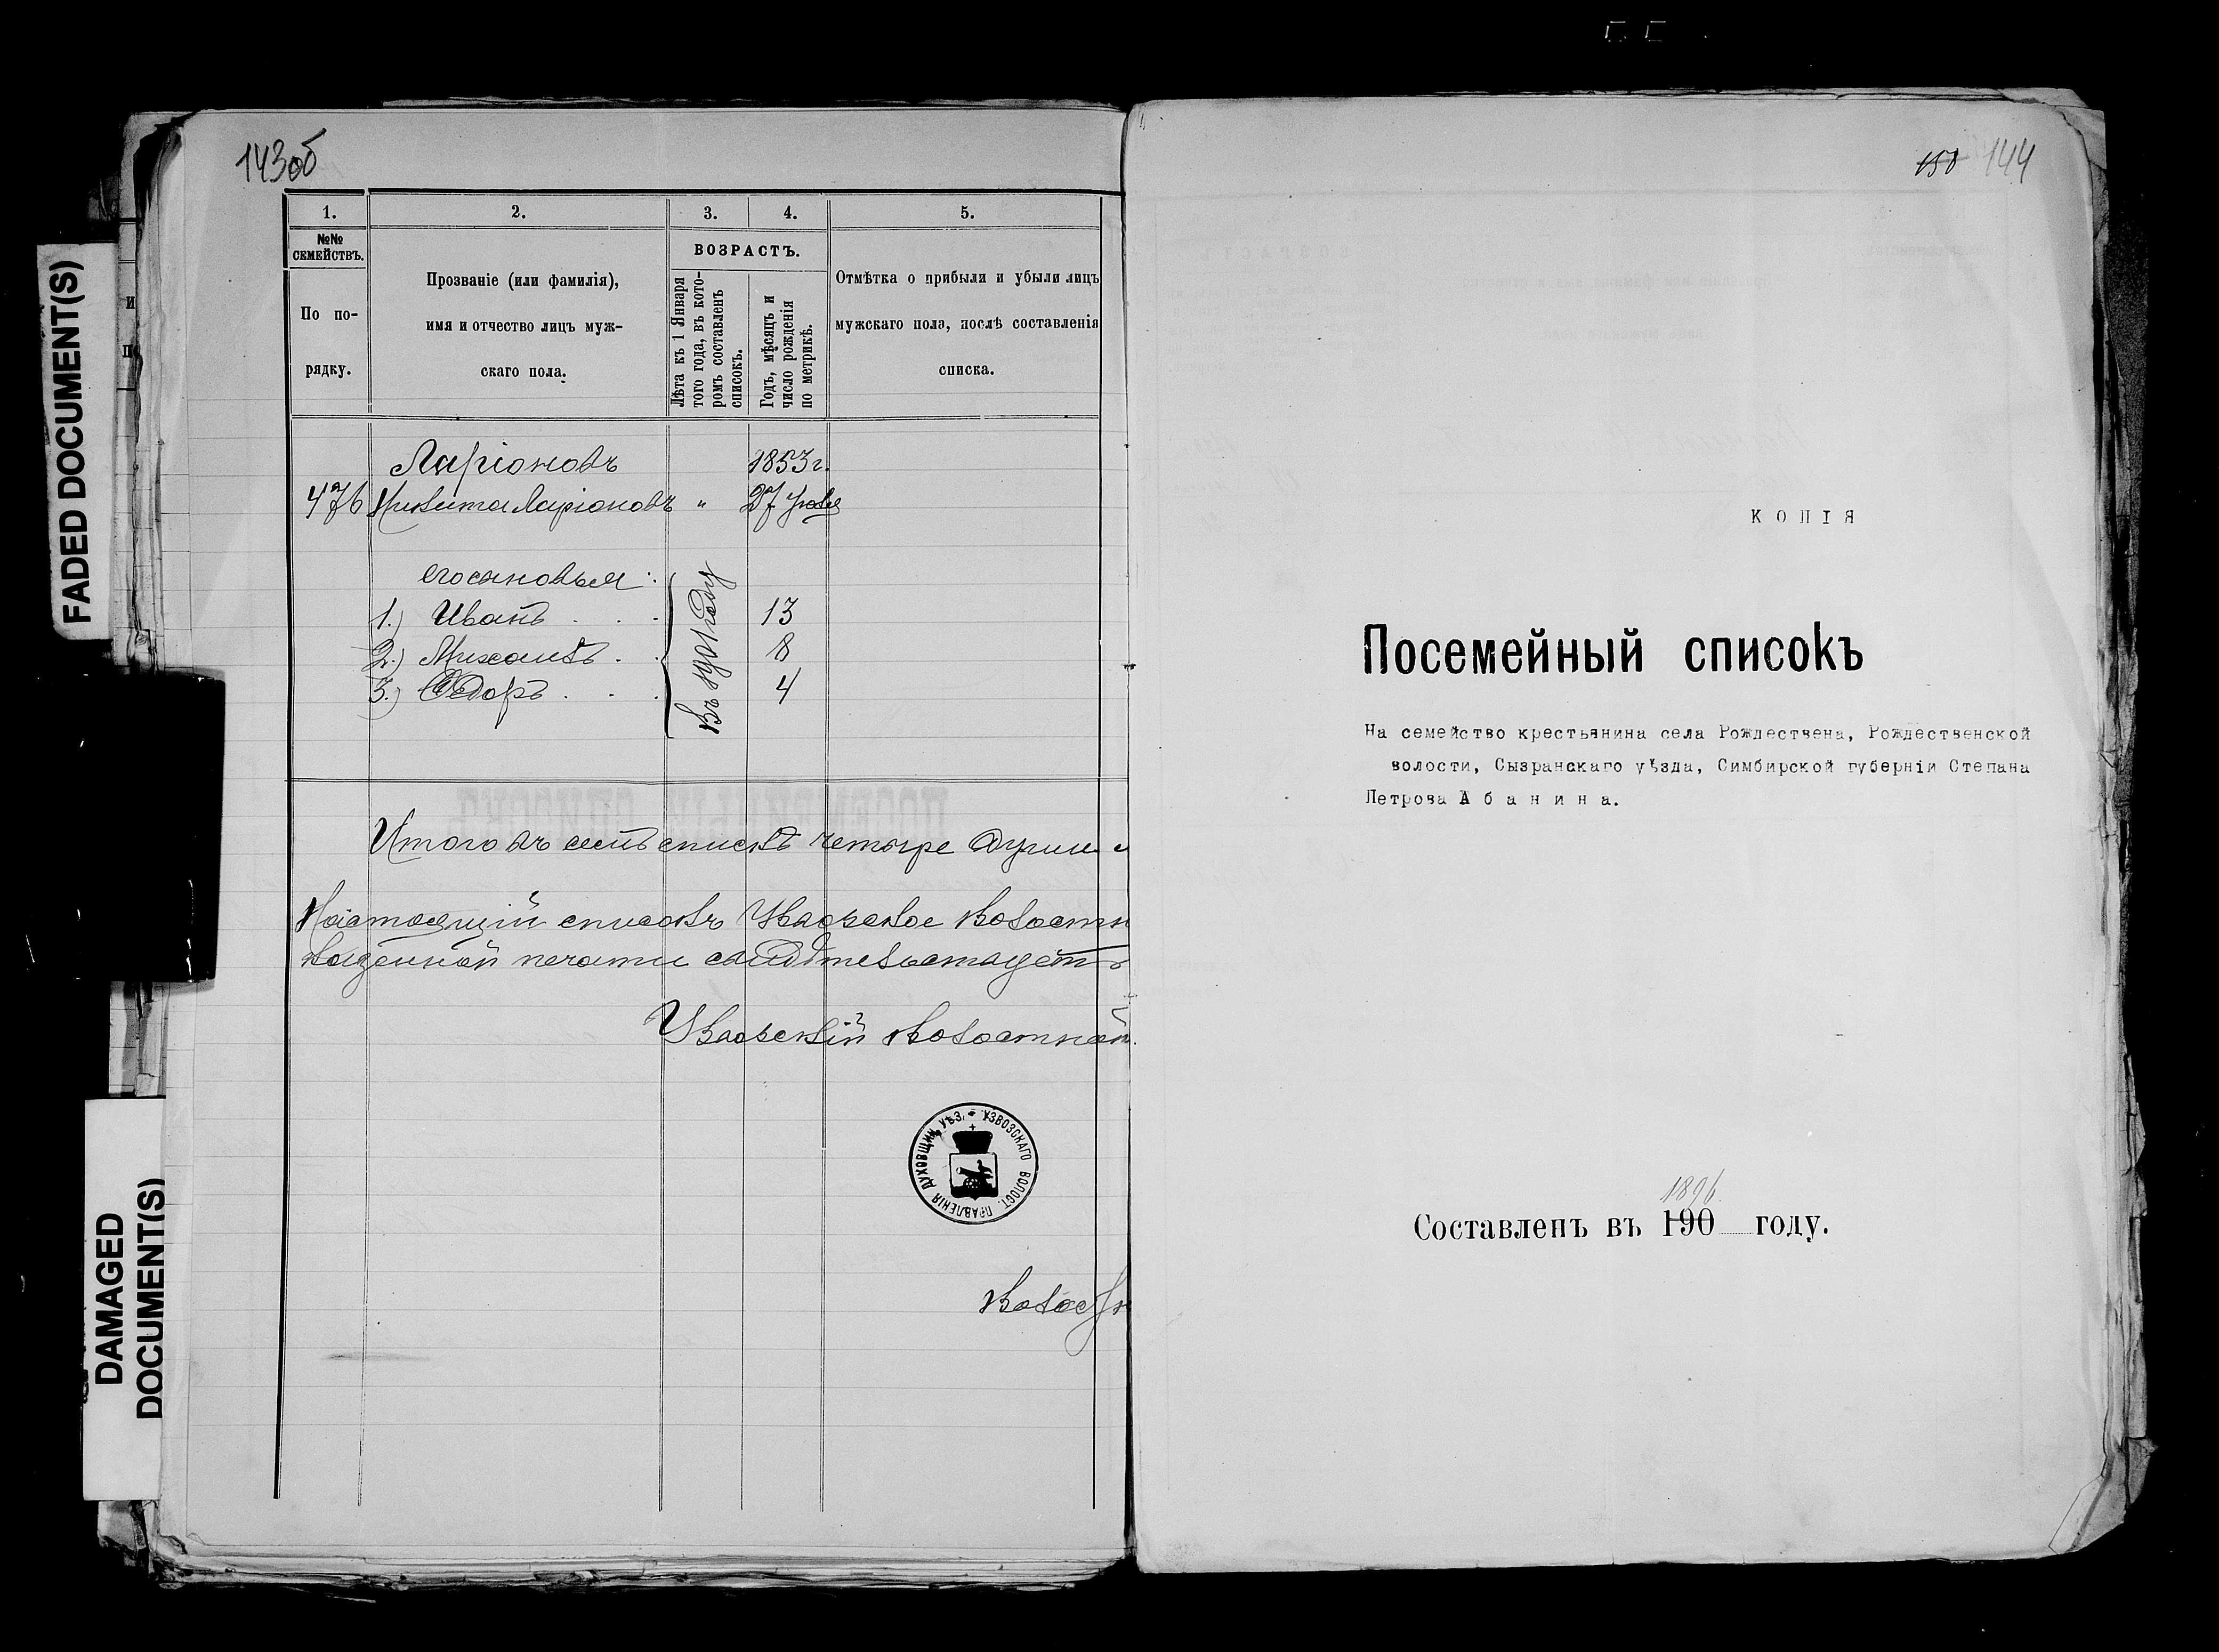 143об
1.
2.
3.
4.
5.
№№ СЕМЕЙСТВЪ.
По по-
рядку.
Прозваніе (или фамилія),
имя и отчество лицъ муж-
скаго пола.
ВОЗРАСТЪ.
Лѣта къ 1 Января
того года, въ кото-
ромъ составленъ
списокъ.
Годъ, мѣсяцъ и
число рожденія
по метрикѣ.
Отмѣтка о прибыли и убыли лицъ
мужскаго пола, послѣ составленія
списка.
Ларіоновъ 1853 г.
476 Никита Ларіоновъ " 27
его сыновья:
1.) Иванъ . . . 13
2.) Михаилъ . . 8
3.) Ѳедоръ . . . 4
Итого въ семъ спискѣ четыре души
Настоящій списокъ Узвозское Волостн
казенной печати свидѣтельствуетъ
Узвозскій Волостной
ДУХОВЩИН. УѢЗ. УЗВОЗСКАГО ВОЛОСТ. ПРАВЛЕНІЯ
Волост
FADED DOCUMENT(S)
DAMAGED
DOCUMENT(S)
150 144
КОПІЯ
Посемейный списокъ
На семейство крестьянина села Рождествена, Рождественской
волости, Сызранскаго уѣзда, Симбирской губерніи Степана
Петрова Абанина.
1896.
Составленъ въ 190 году.